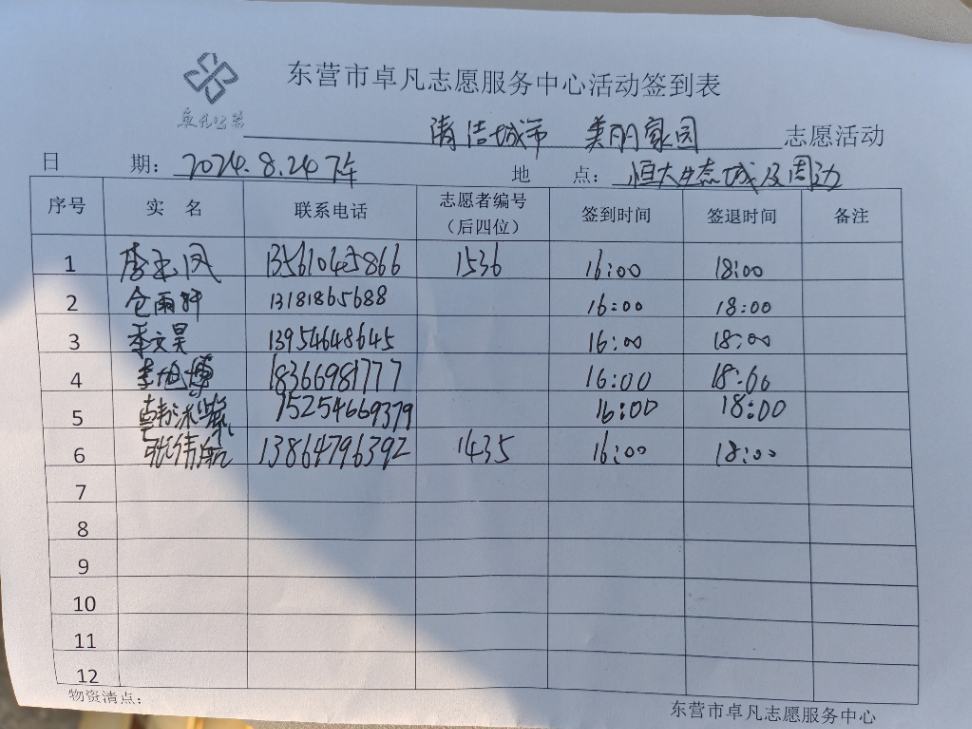 东营市卓凡志愿服务中心活动签到表
卓凡公益
清洁城市 美丽家园 志愿活动
日 期: 2024.8.24 下午 地 点: 恒大生态城及周边
序号 实 名 联系电话 志愿者编号(后四位) 签到时间 签退时间 备注
1 李玉凤 13561045866 1536 16:00 18:00
2 仓雨轩 13181865688 16:00 18:00
3 季文昊 13954648645 16:00 18:00
4 李旭博 18366981777 16:00 18:00
5 韩冰紫 15254669379 16:00 18:00
6 张伟航 13864796392 1435 16:00 18:00
7
8
9
10
11
12
物资清点:
东营市卓凡志愿服务中心